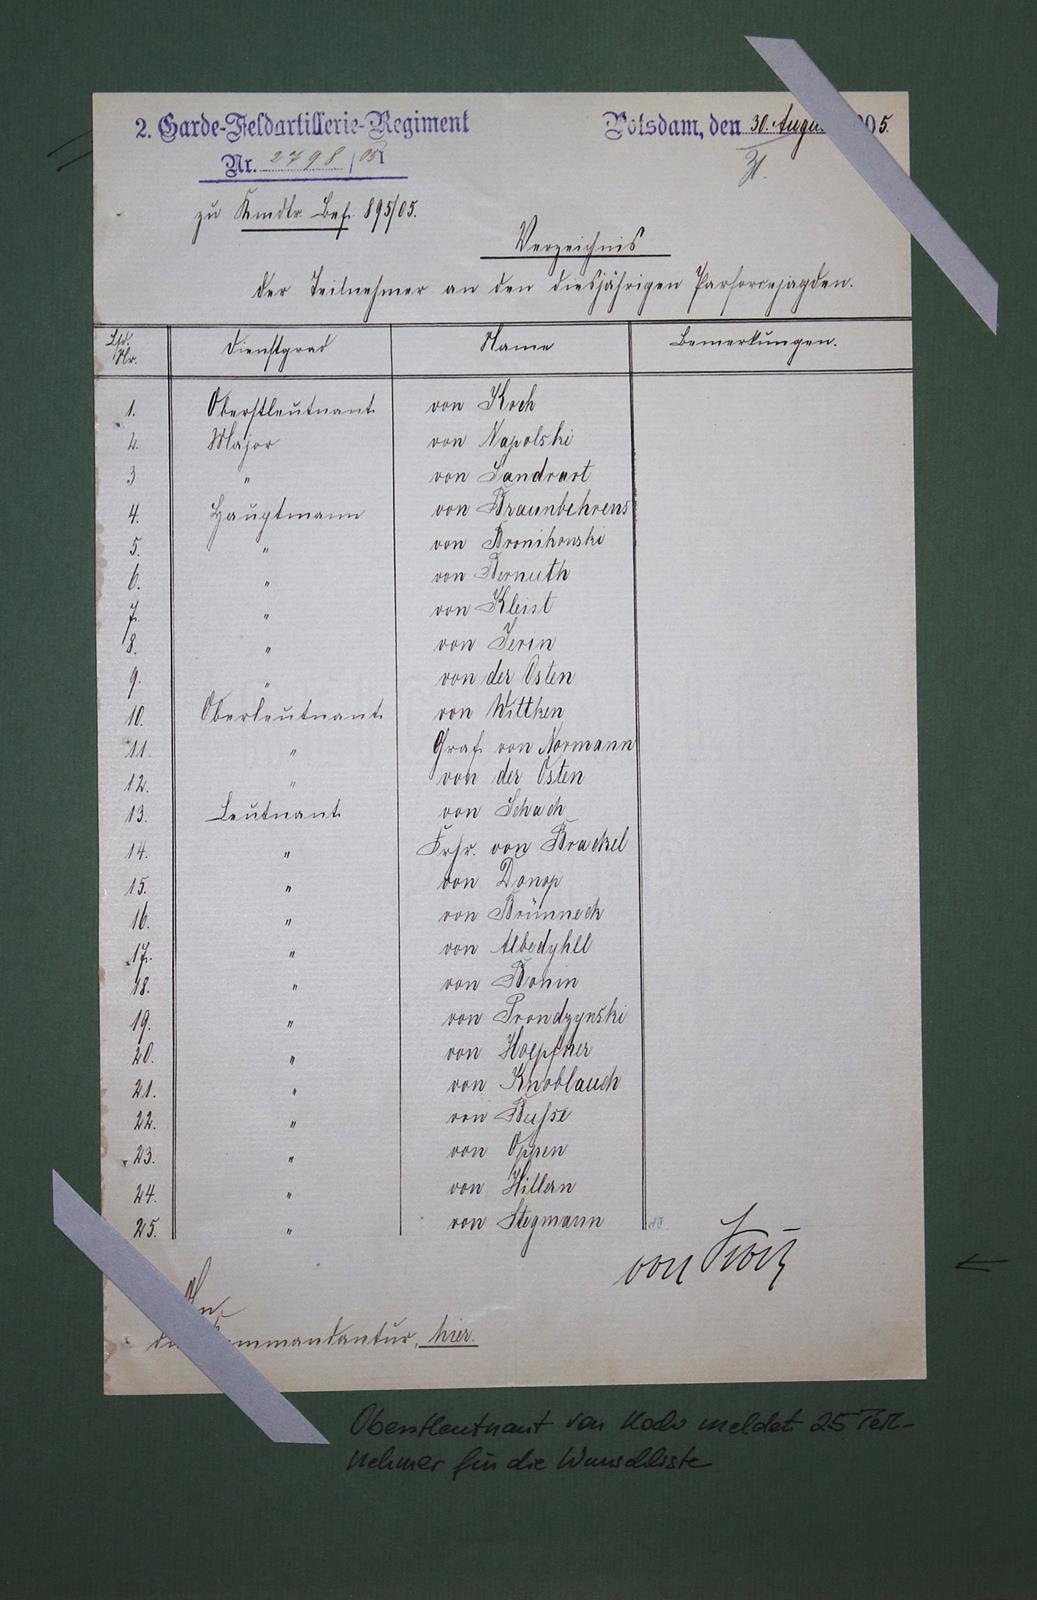 2. Garde-Feldartillerie-Regiment
Potsdam, den 30. Augu 05.
Nr. 2798/05 I
31.
zu Kmdtr. Bef. 895/05.
Verzeichnis
der Teilnehmer an den diesjährigen Parforcejagden.
Lfd. Nr. Dienstgrad Name Bemerkungen.
1. Oberstleutnant von Koch
2. Major von Napolski
3 " von Landrart
4. Hauptmann von Braunbehrens
5. " von Bronikowski
6. " von Bernuth
7. " von Kleist
8. " von Jerin
9. " von der Osten
10. Oberleutnant von Wittken
11. " Graf von Normann
12. " von der Osten
13. Leutnant von Schack
14. " Frhr. von Brackel
15. " von Donop
16. " von Brünneck
17. " von Albedyhll
18. " von Bonin
19. " von Prondzynski
20. " von Hoepfner
21. " von Knoblauch
22. " von Busse
23. " von Oppen
24. " von Hillern
25. " von Stegmann
von
An
ommandantur, hier.
Oberstleutnant von Koch meldet 25 Teil-
nehmer für die Wunschliste